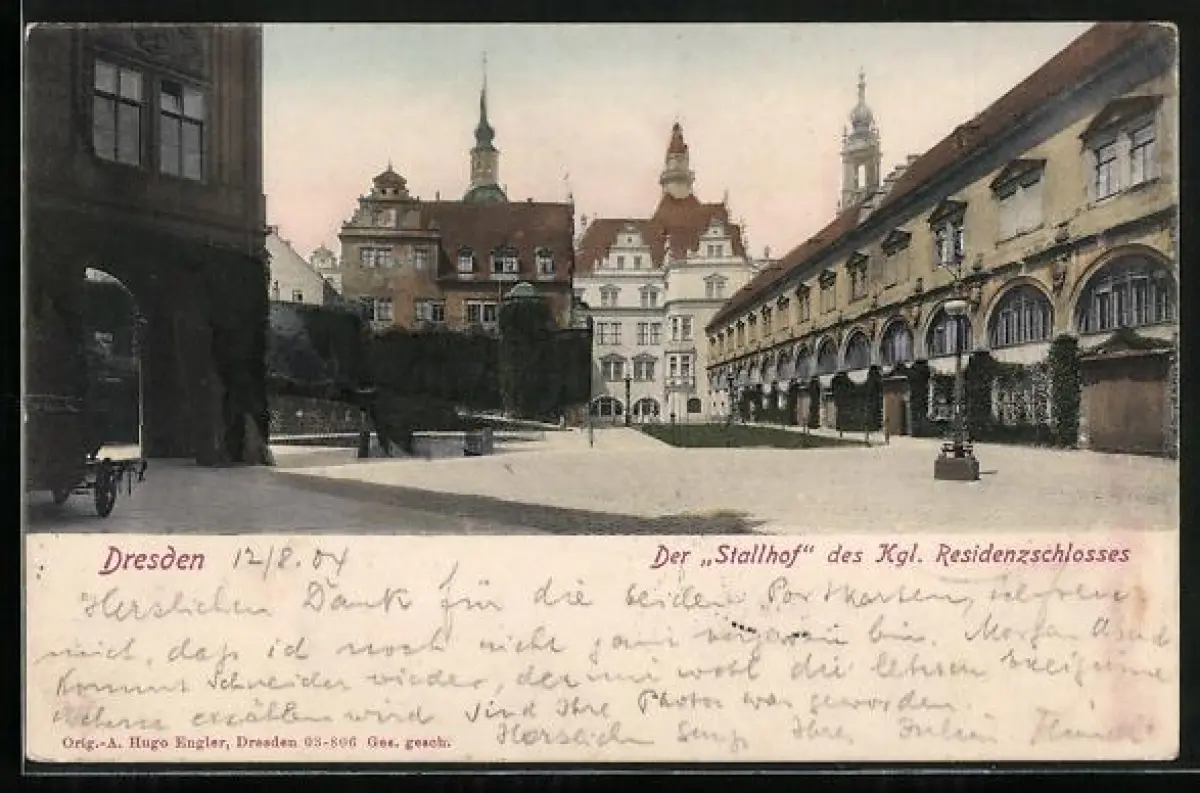 Dresden 12/8.04 Der „Stallhof" des Kgl. Residenzschlosses
Herzlichen Dank für die beiden Postkarten,
mich, daß ich noch nicht ganz vergessen bin. Morgen Abend
kommt Schneider wieder, der mir wohl die letzten Ereignisse
erzählen wird Sind Ihre Photos was geworden.
Orig.-A. Hugo Engler, Dresden 03-806 Ges. gesch. Herzlichen Ihre